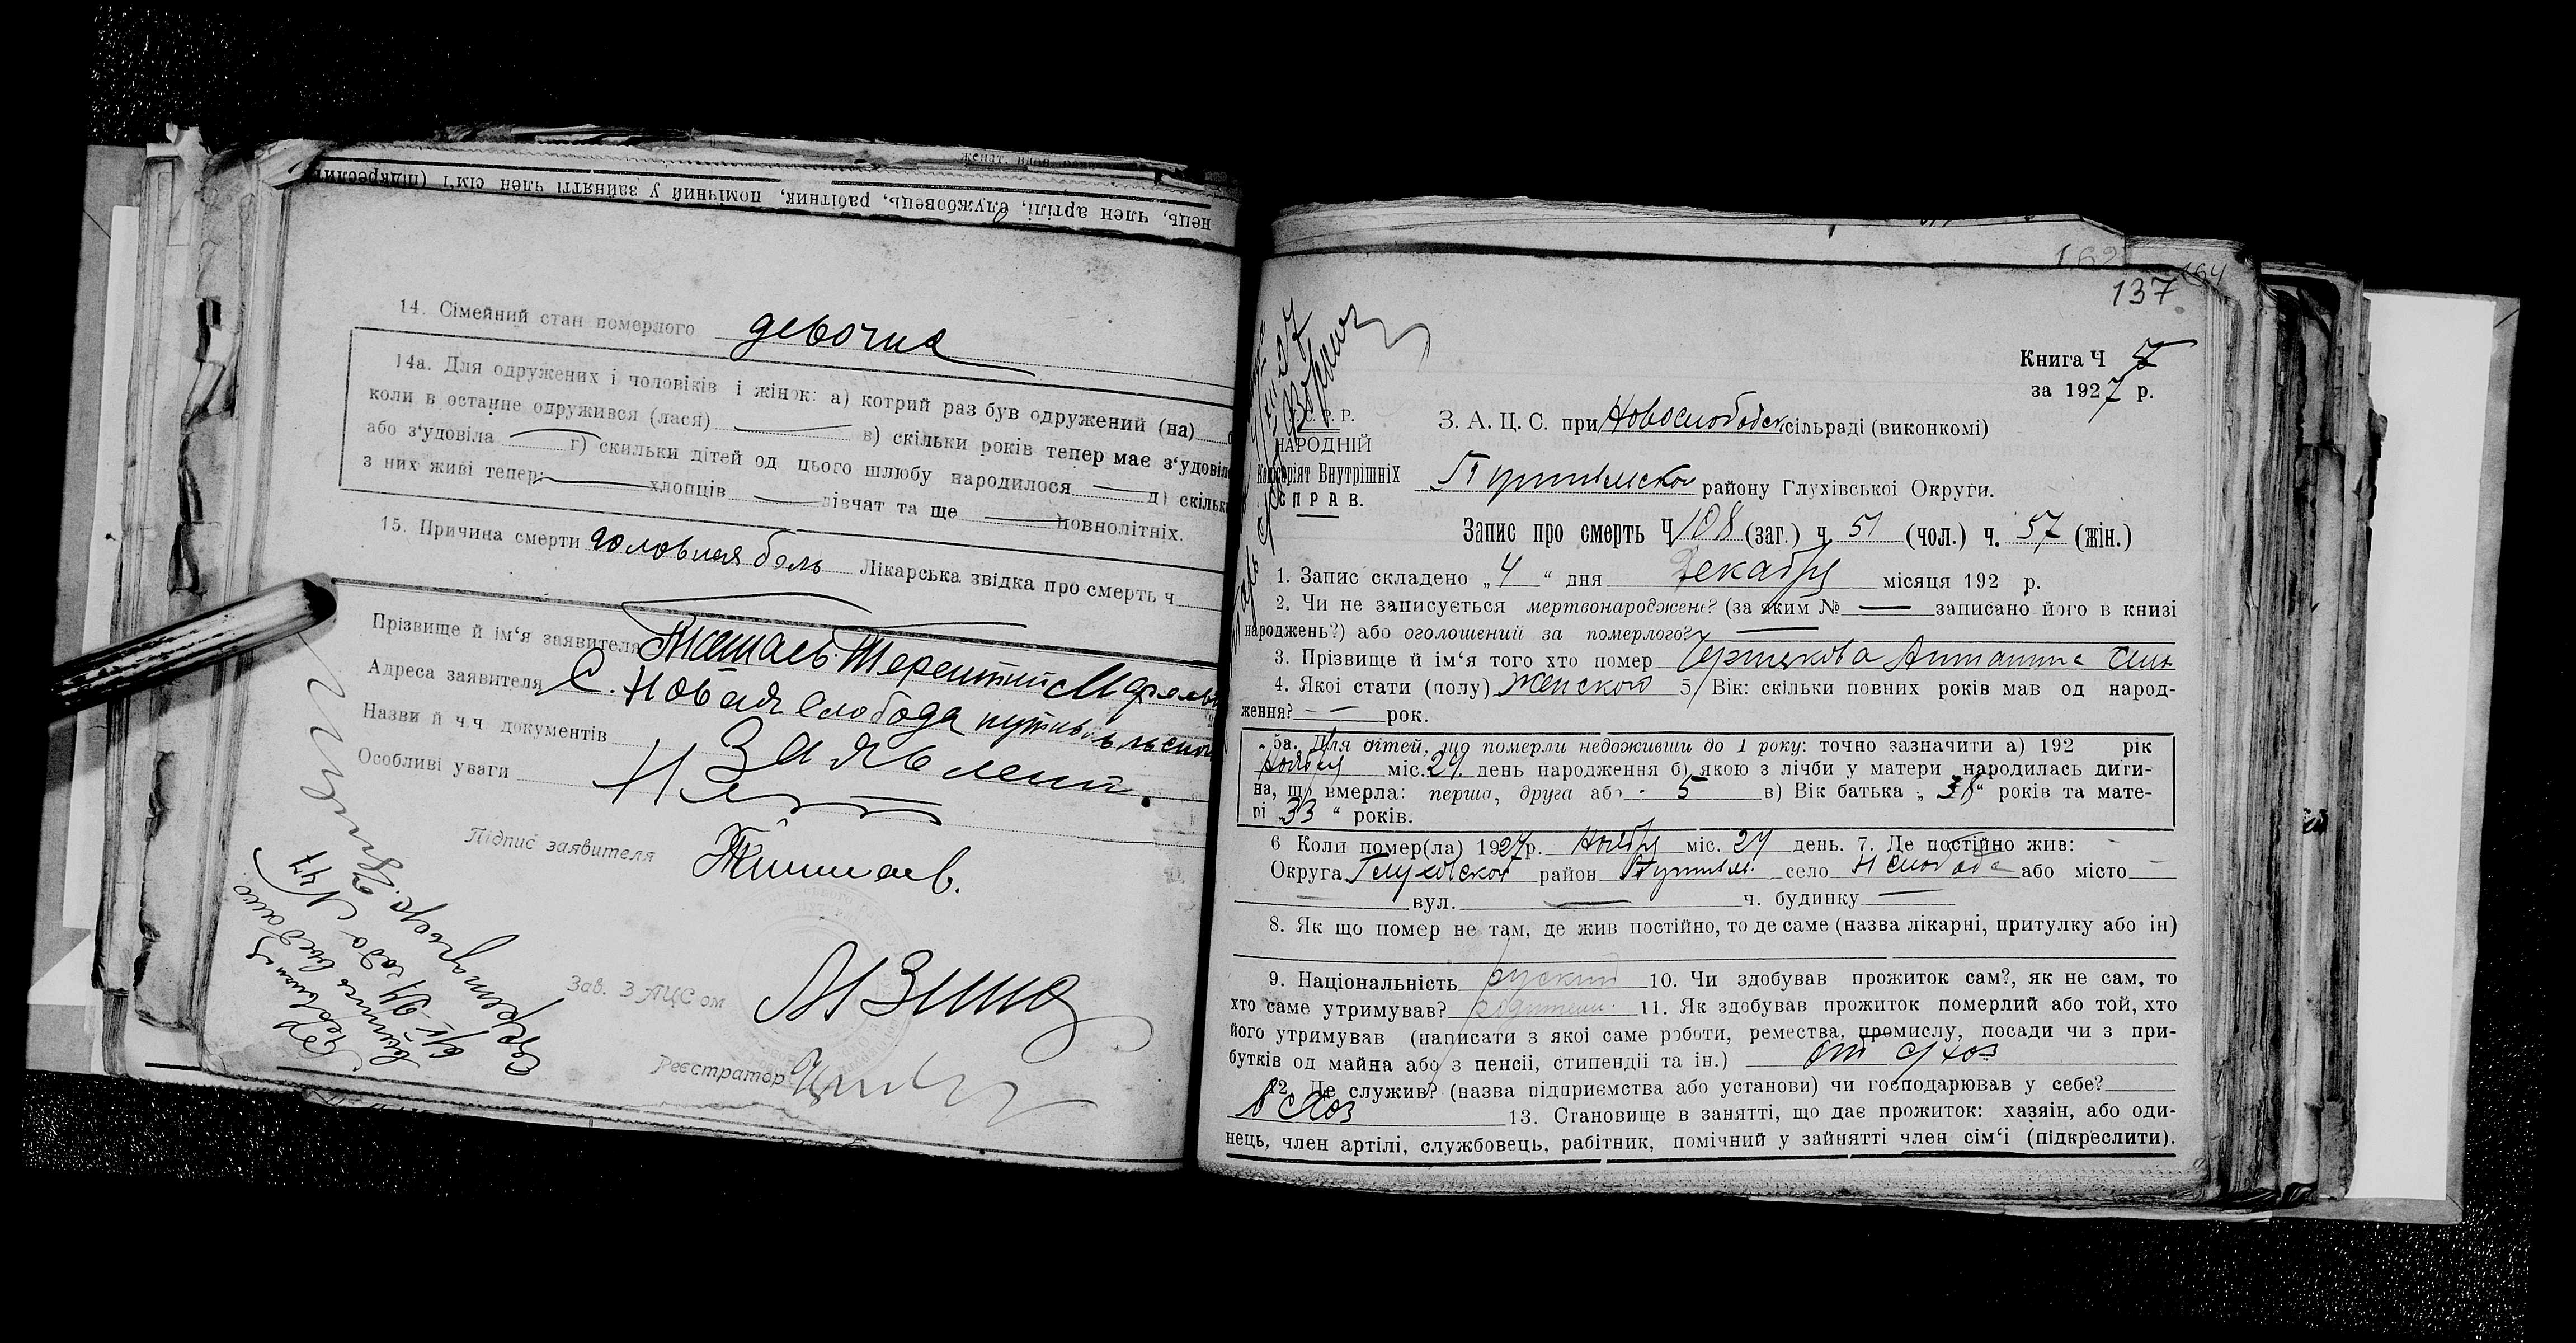 нець, член артілі, службовець, рабітник, помічний у зайнятті член сім'ї (підкреслити
14. Сімейний стан померлого девочка
14а. Для одружених і чоловіків і жінок: а) котрий раз був одружений (на)
коли в останнє одружився (лася) в) скільки років тепер має з'удовіл
або з'удовіла г) скильки дітей од цього шлюбу народилося д) скільк
з них живі тепер: хлопців дівчат та ще повнолітніх.
15. Причина смерти головная боль Лікарська звідка про смерть ч
Прізвище й ім'я заявителя Терентий
Адреса заявителя С. Новая Слобода путивльской
Назви й ч.ч документів Заявлени.
Особливі уваги Нет
Підпис заявителя
Зав. ЗАЦС'ом
Реєстратор
162
164
137
Книга Ч 5
за 1927 р.
У.С.Р.Р.
НАРОДНІЙ
Комісеріят Внутрішніх
СПРАВ.
З. А. Ц. С. при Новослободск сільраді (виконкомі)
Путивльской району Глухівської Округи.
Запис про смерть Ч 108 (заг.) ч. 51 (чол.) ч. 57 (жін.)
1. Запис складено „4" дня Декабря місяця 192 р.
2. Чи не записується мертвонароджене? (за яким № — записано його в книзі
народжень?) або оголошений за померлого? —
3. Прізвище й ім'я того хто помер
4. Якої стати (полу) Женского 5. Вік: скільки повних років мав од народ-
ження? — рок.
5а. Для дітей, що померли недоживши до 1 року: точно зазначити а) 192 рік
Ноября міс. 29. день народження б) якою з лічби у матери народилась дити-
на, що вмерла: перша, друга або 5 в) Вік батька „38" років та мате-
рі 33 " років.
6 Коли помер(ла) 1927р. Ноября міс. 29 день. 7. Де постійно жив:
Округа Глуховской район Путивл. село Н Слобода або місто —
вул. — ч. будинку —
8. Як що помер не там, де жив постійно, то де саме (назва лікарні, притулку або ін)
9. Національність руский 10. Чи здобував прожиток сам?, як не сам, то
хто саме утримував? родители. 11. Як здобував прожиток померлий або той, хто
його утримував (написати з якої саме роботи, ремества, промислу, посади чи з при-
бутків од майна або з пенсії, стипендії та ін.) от с/хоз
12. Де служив? (назва підприємства або установи) чи господарював у себе?
в с/хоз 13. Становище в занятті, що дає прожиток: хазяін, або оди-
нець, член артілі, службовець, рабітник, помічний у зайнятті член сім'ї (підкреслити).